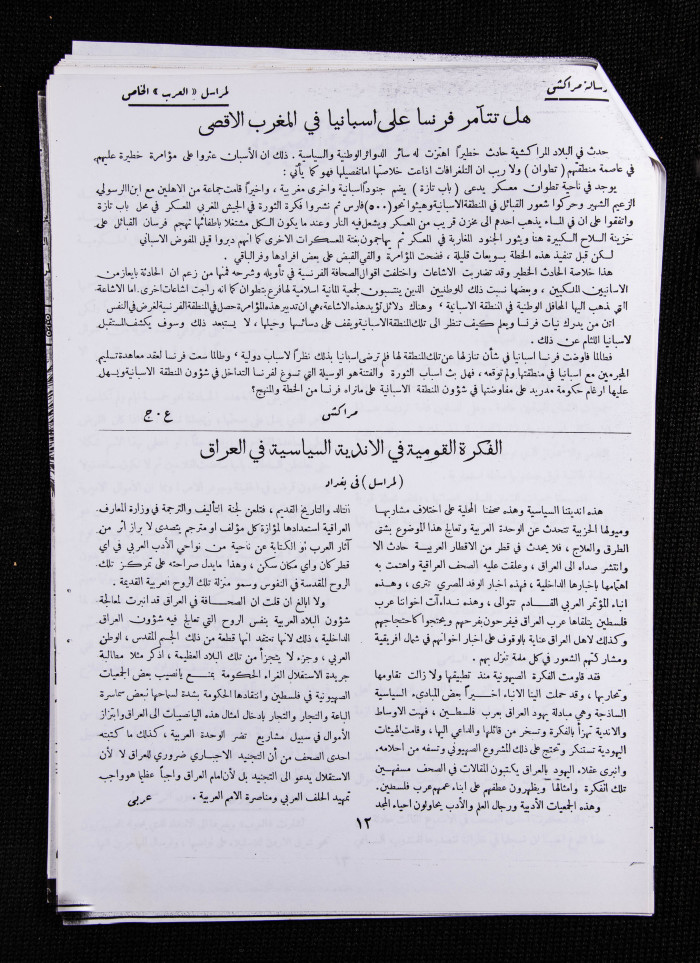 رسالة مراكش
لمراسل «العرب» الخاص
هل تتآمر فرنسا على اسبانيا في المغرب الاقصى
حدث في البلاد المراكشية حادث خطير اهتزت له سائر الدوائر الوطنية والسياسية . ذلك ان الأسبان عثروا على مؤامرة خطيرة عليهم
في عاصمة منطقتهم (تطوان) ولا ريب ان التلغرافات اذاعت خلاصتها اما تفصيلها فهو كما يأتي :
يوجد في ناحية تطوان معسكر يدعى (باب تازة) يضم جنوداً اسبانية واخرى مغربية ، واخيراً قامت جماعة من الاهلين مع ابن الرسولي
الزعيم الشهير وحركوا شعور القبائل في المنطقة الاسبانية وهيئوا نحو (٥٠٠) فارس ثم نشروا فكرة الثورة في الجيش المغربي للمعسكر في محل باب تازة
واتفقوا على ان في المساء يذهب احدم الى مخزن قريب من المعسكر ويشعل فيه النار وعند ما يكون الكل مشتغلا باطفائها تهجم فرسان القبائل على
خزينة السلاح الكبيرة هنا ويثور الجنود المغاربة في المعسكر ثم يهاجمون بغتة المعسكرات الاخرى كما انهم دبروا قبل للمفوض الاسباني
لكن قبل تنفيذ هذه الخطة بسويعات قليلة ، فضحت المؤامرة والقي القبض على بعض افرادها وفر الباقي .
هذا خلاصة الحادث الخطير وقد تضاربت الاشاعات واختلفت اقوال الصحافة الفرنسية في تأويله وشرحه فمنها من زعم ان الحادثة بايعاز من
الاسبانيين الملكيين ، وبعضها نسبت ذلك للوطنيين الذين ينتسبون لجمعية المانية اسلامية لها فرع بتطوان كما انه راجت اشاعات اخرى. اما الاشاعة
التي تذهب اليها المحافل الوطنية في المنطقة الاسبانية ، وهناك دلائل تؤيد هذه الاشاعة، هي ان تدبير هذه المؤامرة حصل في المنطقة الفرنسية لغرض في النفس
اتن من يدرك نيات فرنسا ويعلم كيف تنظر الى تلك المنطقة الاسبانية ويقف على دسائسها وحيلها ، لا يستبعد ذلك وسوف يكشف المستقبل
لاسبانيا اللثام عن ذلك .
فطالما فاوضت فرنسا اسبانيا في شأن تنازلها عن تلك المنطقة لها فلم ترضى اسبانيا بذلك نظراً لاسباب دولية ، وطالما سعت فرنسا لعقد معاهدة تسليم
المجرمين مع اسبانيا في منطقتها ولم توقعه ، فهل بث اسباب الثورة والفتنة هو الوسيلة التي تسوغ لفرنسا التداخل في شؤون المنطقة الاسبانية ويسهل
عليها ارغام حكومة مدريد على مفاوضتها في شؤون المنطقة الاسبانية على ماتراه فرنسا من الخطة والمنهج؟
مراكش
ع . ج
الفكرة القومية في الاندية السياسية في العراق
(لمراسل) في بغداد
هذه انديتنا السياسية وهذه صحفنا المحلية على اختلاف مشاربها
وميولها الحزبية تتحدث عن الوحدة العربية وتعالج هذا الموضوع بشتى
الطرق والعلاج ، فلا يحدث في قطر من الاقطار العربية حادث الا
وانتشر صداه الى العراق ، وعلقت عليه الصحف العراقية واهتمت به
اهتمامها باخبارها الداخلية ، فهذه اخبار الوفد المصري تترى ، وهذه
انباء المؤتمر العربي القادم تتوالى ، وهذه نداءآت اخواننا عرب
فلسطين يتلقاها عرب العراق فيفرحون بفرحهم ويحتجوا كاحتجاجهم
وكذلك لاهل العراق عناية بالوقوف على اخبار اخوانهم في شمال افريقية
ومشاركتهم الشعور في كل ملمة تنزل بهم .
فقد قاومت الفكرة الصهيونية منذ تطبيقها ولا زالت تقاومها
وتحاربها ، وقد حملت الينا الانباء اخيراً بعض المبادىء السياسية
الساذجة وهي مبادلة يهود العراق بعرب فلسطين ، فهبت الاوساط
والاندية تهزأ بالفكرة وتسخر من قائلها والداعي اليها ، وقامت الهيئات
اليهودية تستنكر وتحتج على ذلك المشروع الصهيوني وتسفه من احلامه.
وانبرى عقلاء اليهود بالعراق يكتبون المقالات في الصحف مسفهين
تلك الفكرة وامثالها ويظهرون عطفهم على ابناء عمهم عرب فلسطين.
وهذه الجمعيات الأدبية ورجال العلم والأدب يحاولون احياء المجد
التالد والتاريخ القديم ، فتعلن لجنة التأليف والترجمة في وزارة المعارف
العراقية استعدادها لمؤازة كل مؤلف او مترجم يتصدى لابراز أثر من
آثار العرب أو الكتابة عن ناحية من نواحي الأدب العربي في اي
قطر كان واي مكان سكن ، وهذا مايدل صراحته على تمركز تلك
الروح المقدسة في النفوس وسمو منزلة تلك الروح العربية القديمة .
ولا ابالغ ان قلت ان الصحافة في العراق قد انبرت لمعالجة
شؤون البلاد العربية بنفس الروح التي تعالج فيه شؤون العراق
الداخلية ، ذلك لانها تعتقد انها قطعة من ذلك الجسم المقدس ، الوطن
العربي ، وجزء لا يتجزأ من تلك البلاد العظيمة ، اذكر مثلا مطالبة
جريدة الاستقلال الغراء الحكومة بمنع يانصيب بعض الجمعيات
الصهيونية في فلسطين وانتقادها الحكومة بشدة لسماحها لبعض سماسرة
الباعة والتجار والتجار بادخال امثال هذه اليانصيبات الى العراق وابتزاز
الأموال في سبيل مشاريع تضر الوحدة العربية ، كذلك ما كتبته
احدى الصحف من أن التجنيد الاجباري ضروري للعراق لا لأن
الاستقلال يدعو الى التجنيد بل لأن امام العراق واجباً عظيما هو واجب
تمهيد الحلف العربي ومناصرة الامم العربية .
عربي
١٢